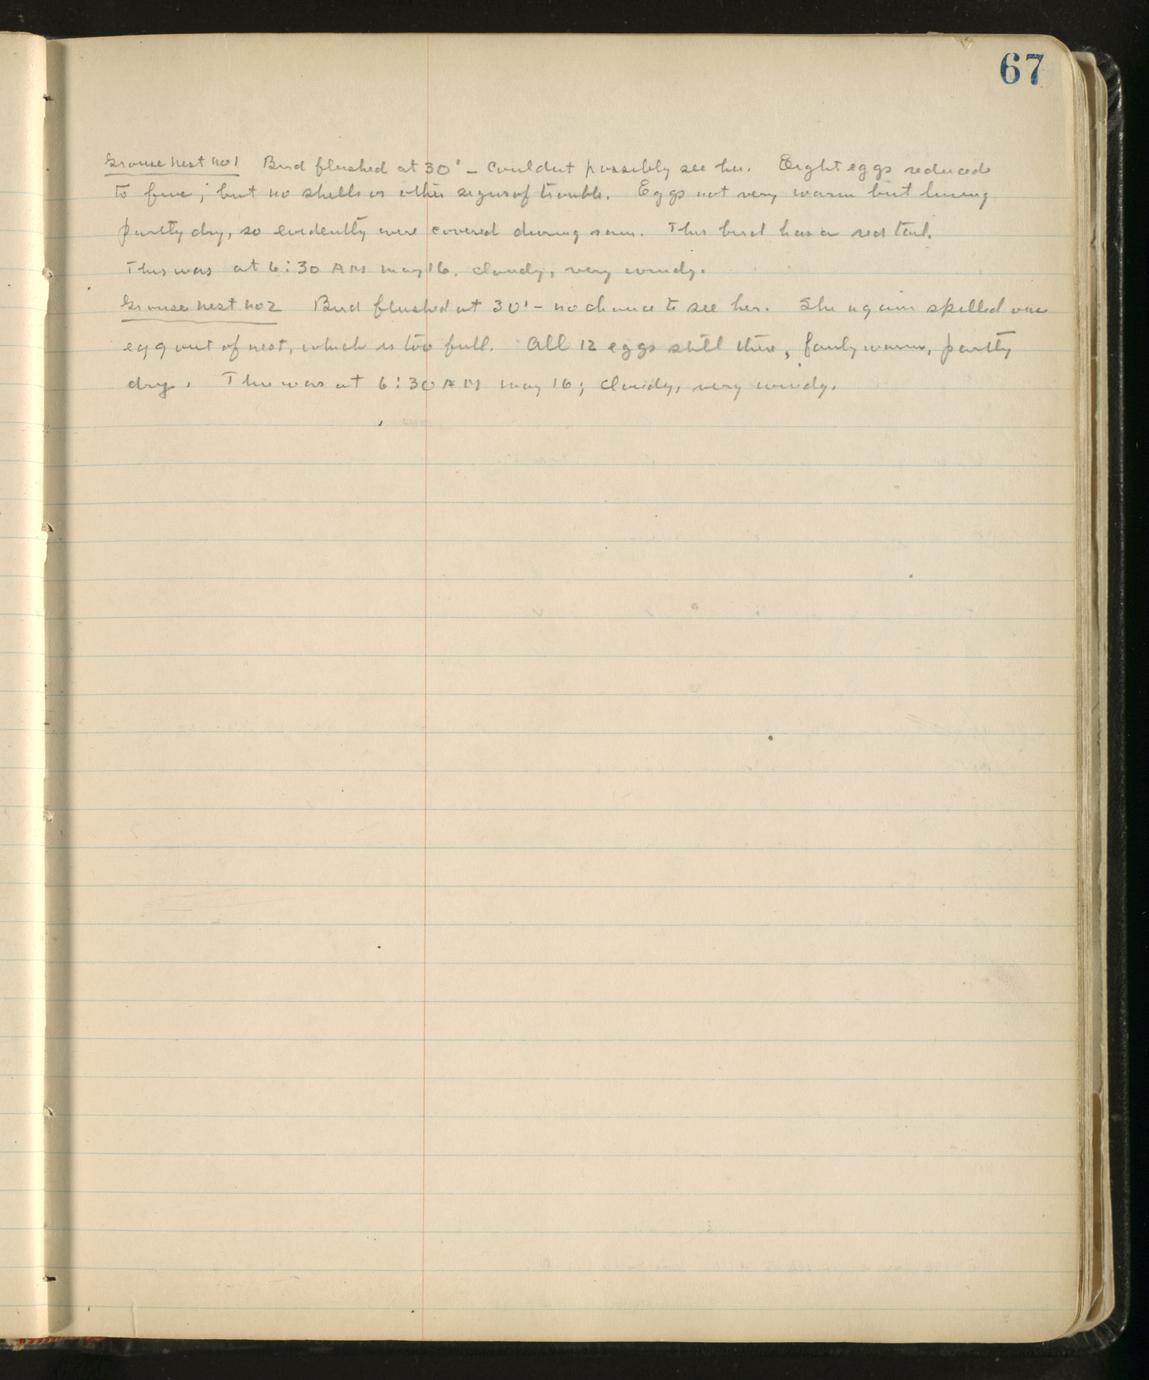 67
Grouse nest no1 Bird flushed at 30' - Couldnt possibly see her. Eight eggs reduced
to five; but no shells or other signs of trouble. Eggs not very warm but lining
partly dry, so evidently were covered during rain. This bird has a red tail.
This was at 6:30 AM May 16, cloudy, very windy.
Grouse nest no2 Bird flushed at 30' - no chance to see her. She again spilled one
egg out of nest, which is too full. All 12 eggs still there, fairly warm, partly
dry. This was at 6:30 AM May 16; cloudy, very windy.